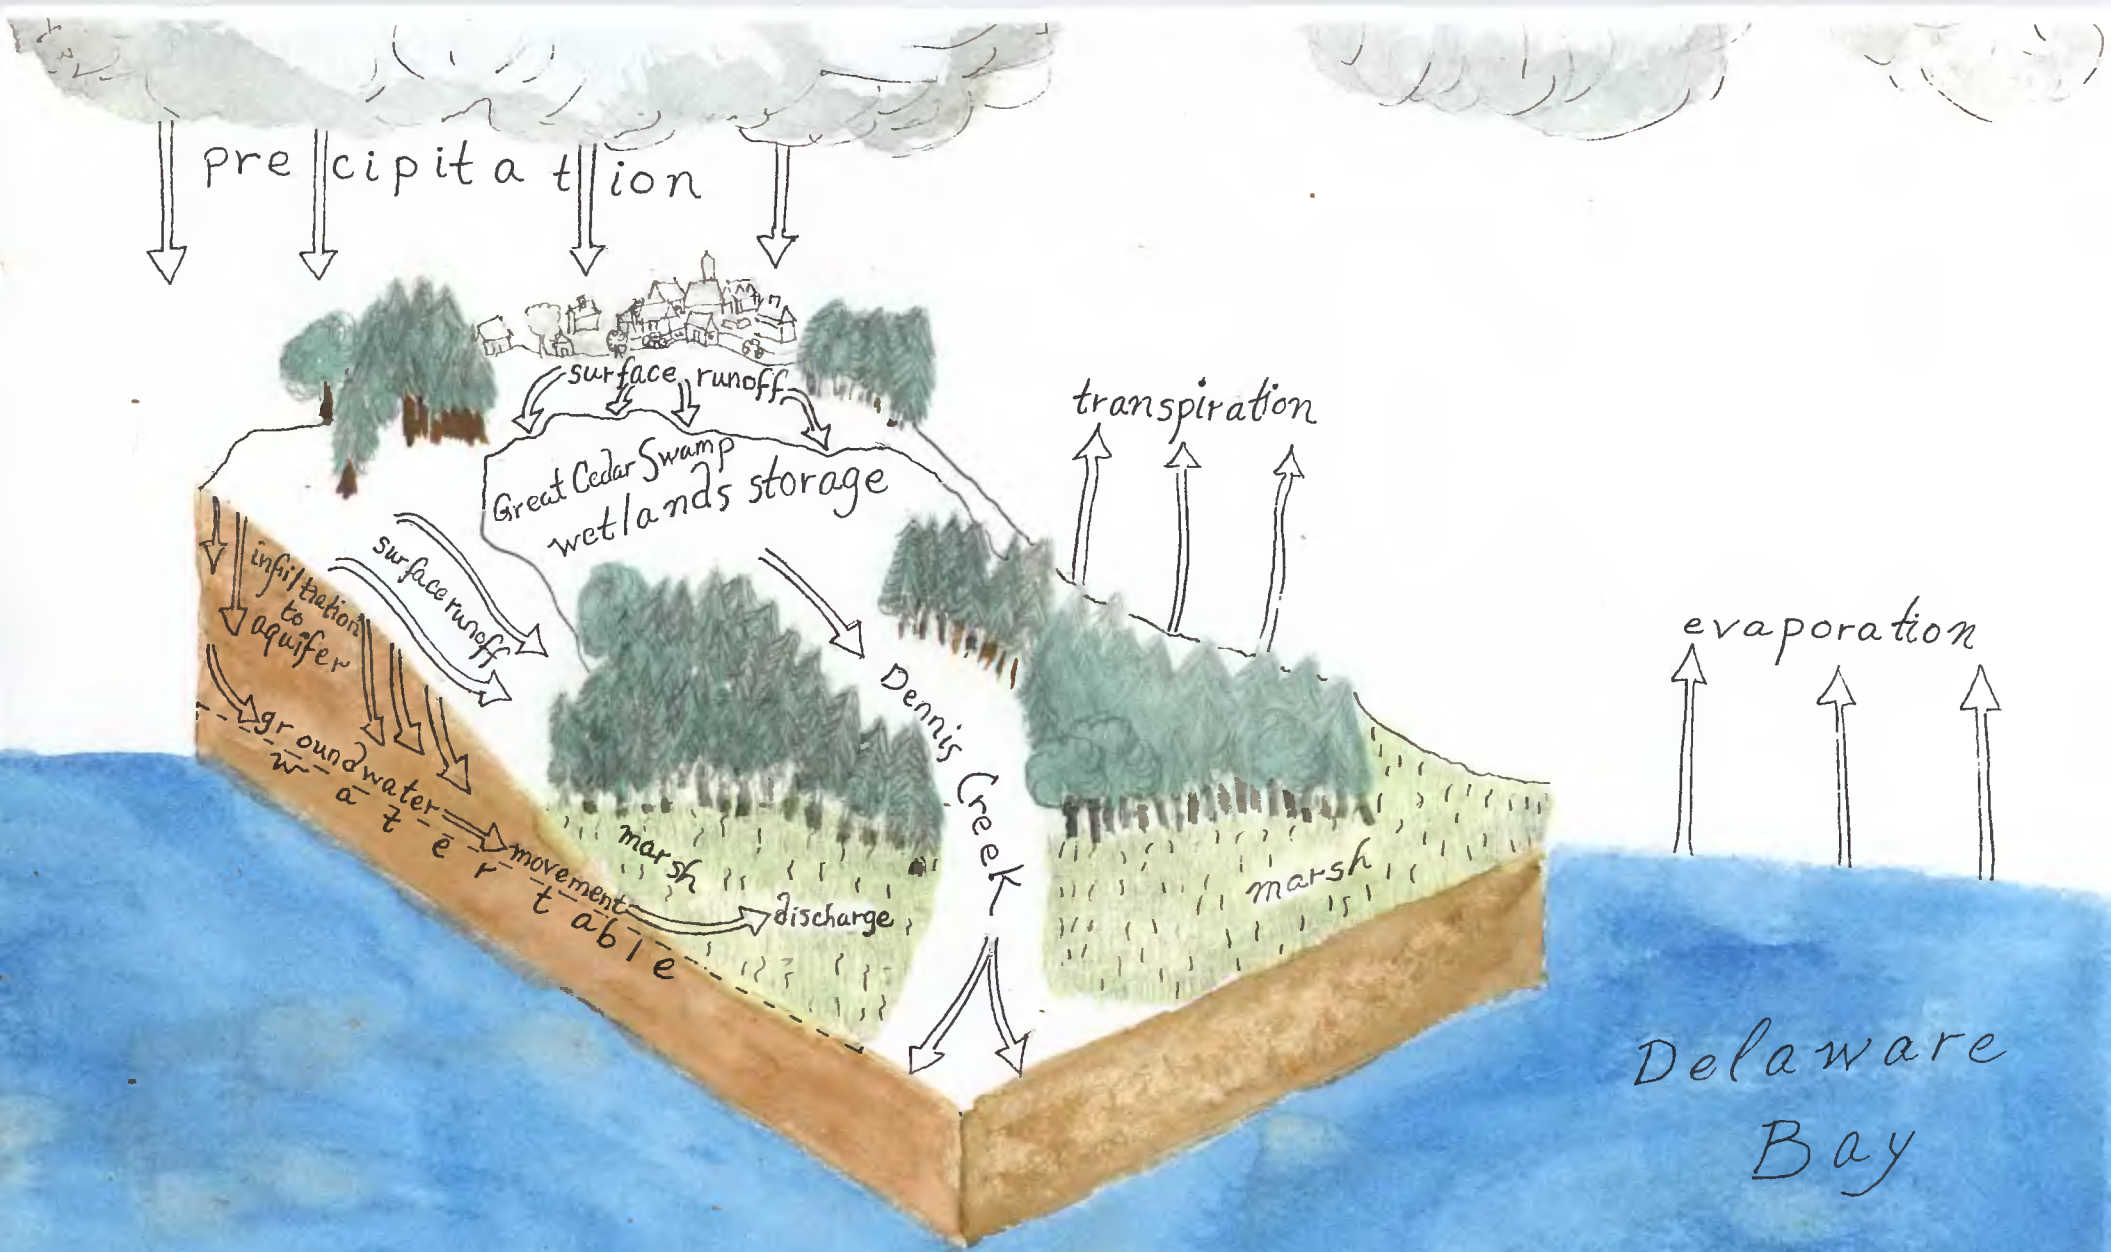 precipitation
surface runoff
transpiration
Great Cedar Swamp
wetlands storage
surface runoff
infiltration
to
aquifer
evaporation
Dennis Creek
groundwater movement
water table
marsh
discharge
marsh
Delaware
Bay